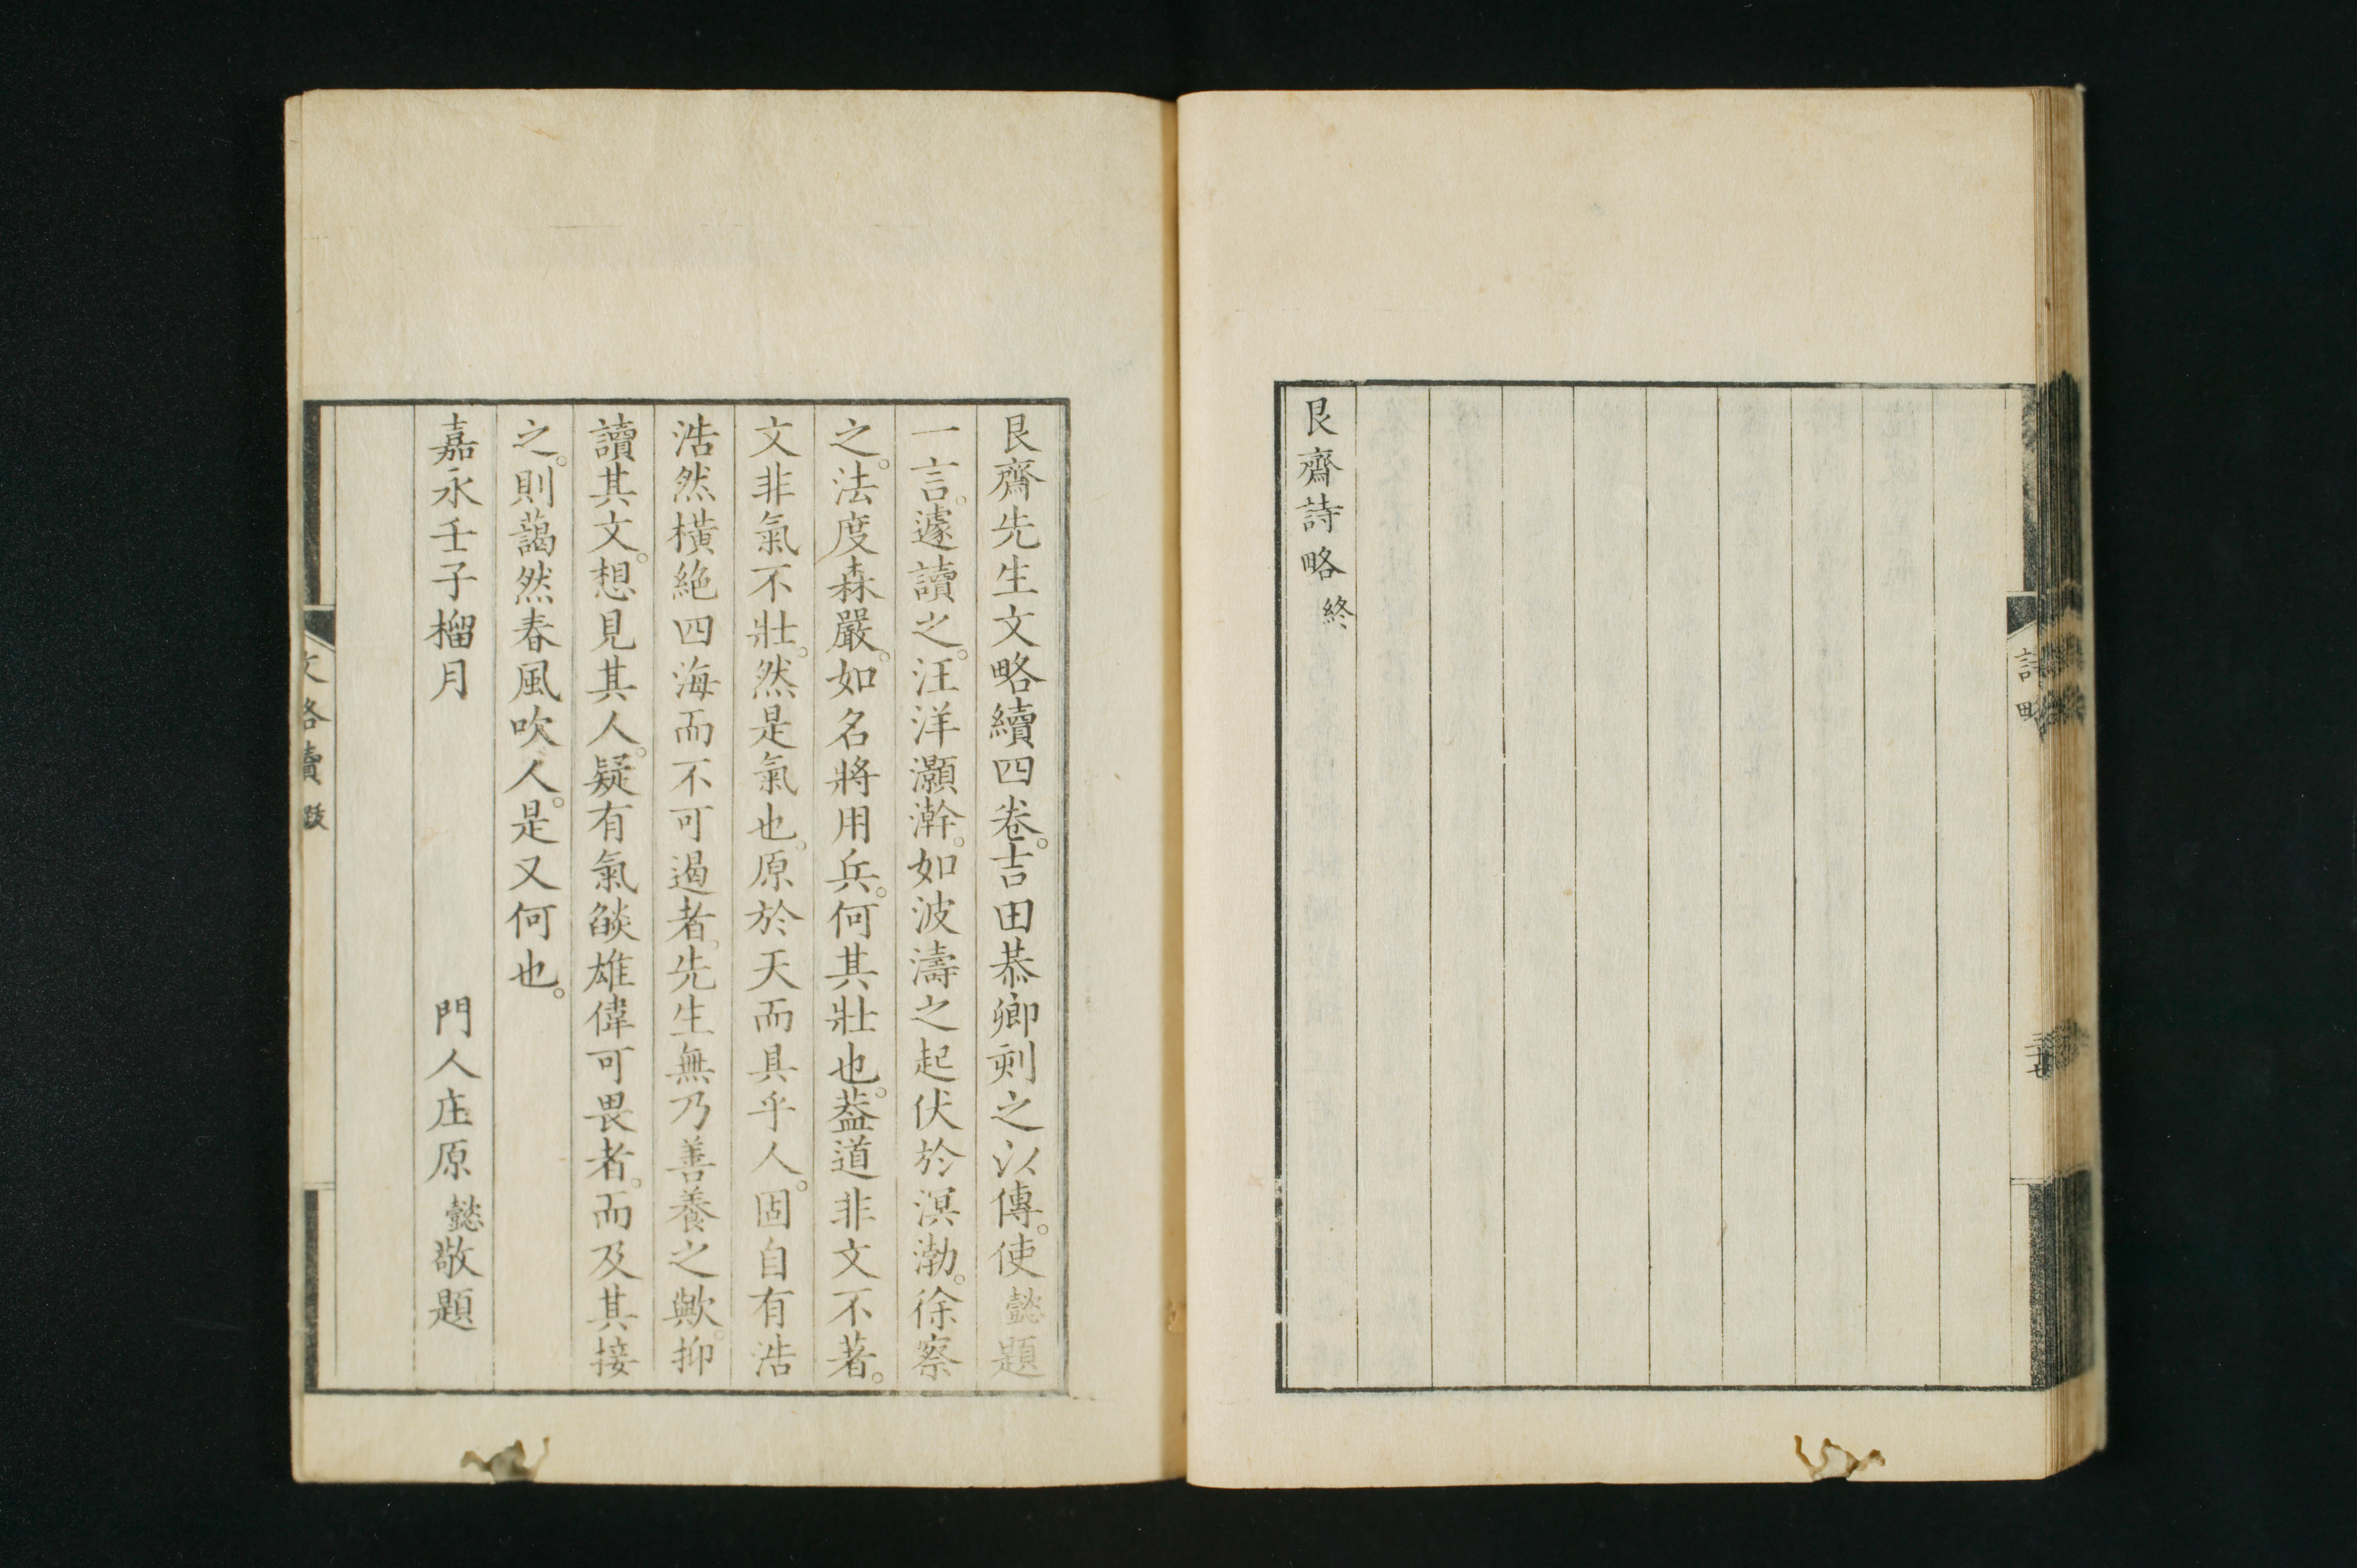 艮齋詩略終
艮齋先生文略續四卷。吉田恭卿刻之以傳。使懿題
一言。遽讀之。汪洋灝瀚。如波濤之起伏於溟渤。徐察
之。法度森嚴。如名將用兵。何其壯也。葢道非文不著。
文非氣不壯。然是氣也。原於天而具乎人。固自有浩
浩然橫絶四海而不可遏者。先生無乃善養之歟。抑
讀其文。想見其人。疑有氣燄雄偉可畏者。而及其接
之。則藹然春風吹人。是又何也。
嘉永壬子榴月　門人庄原懿敬題
文略續 跋